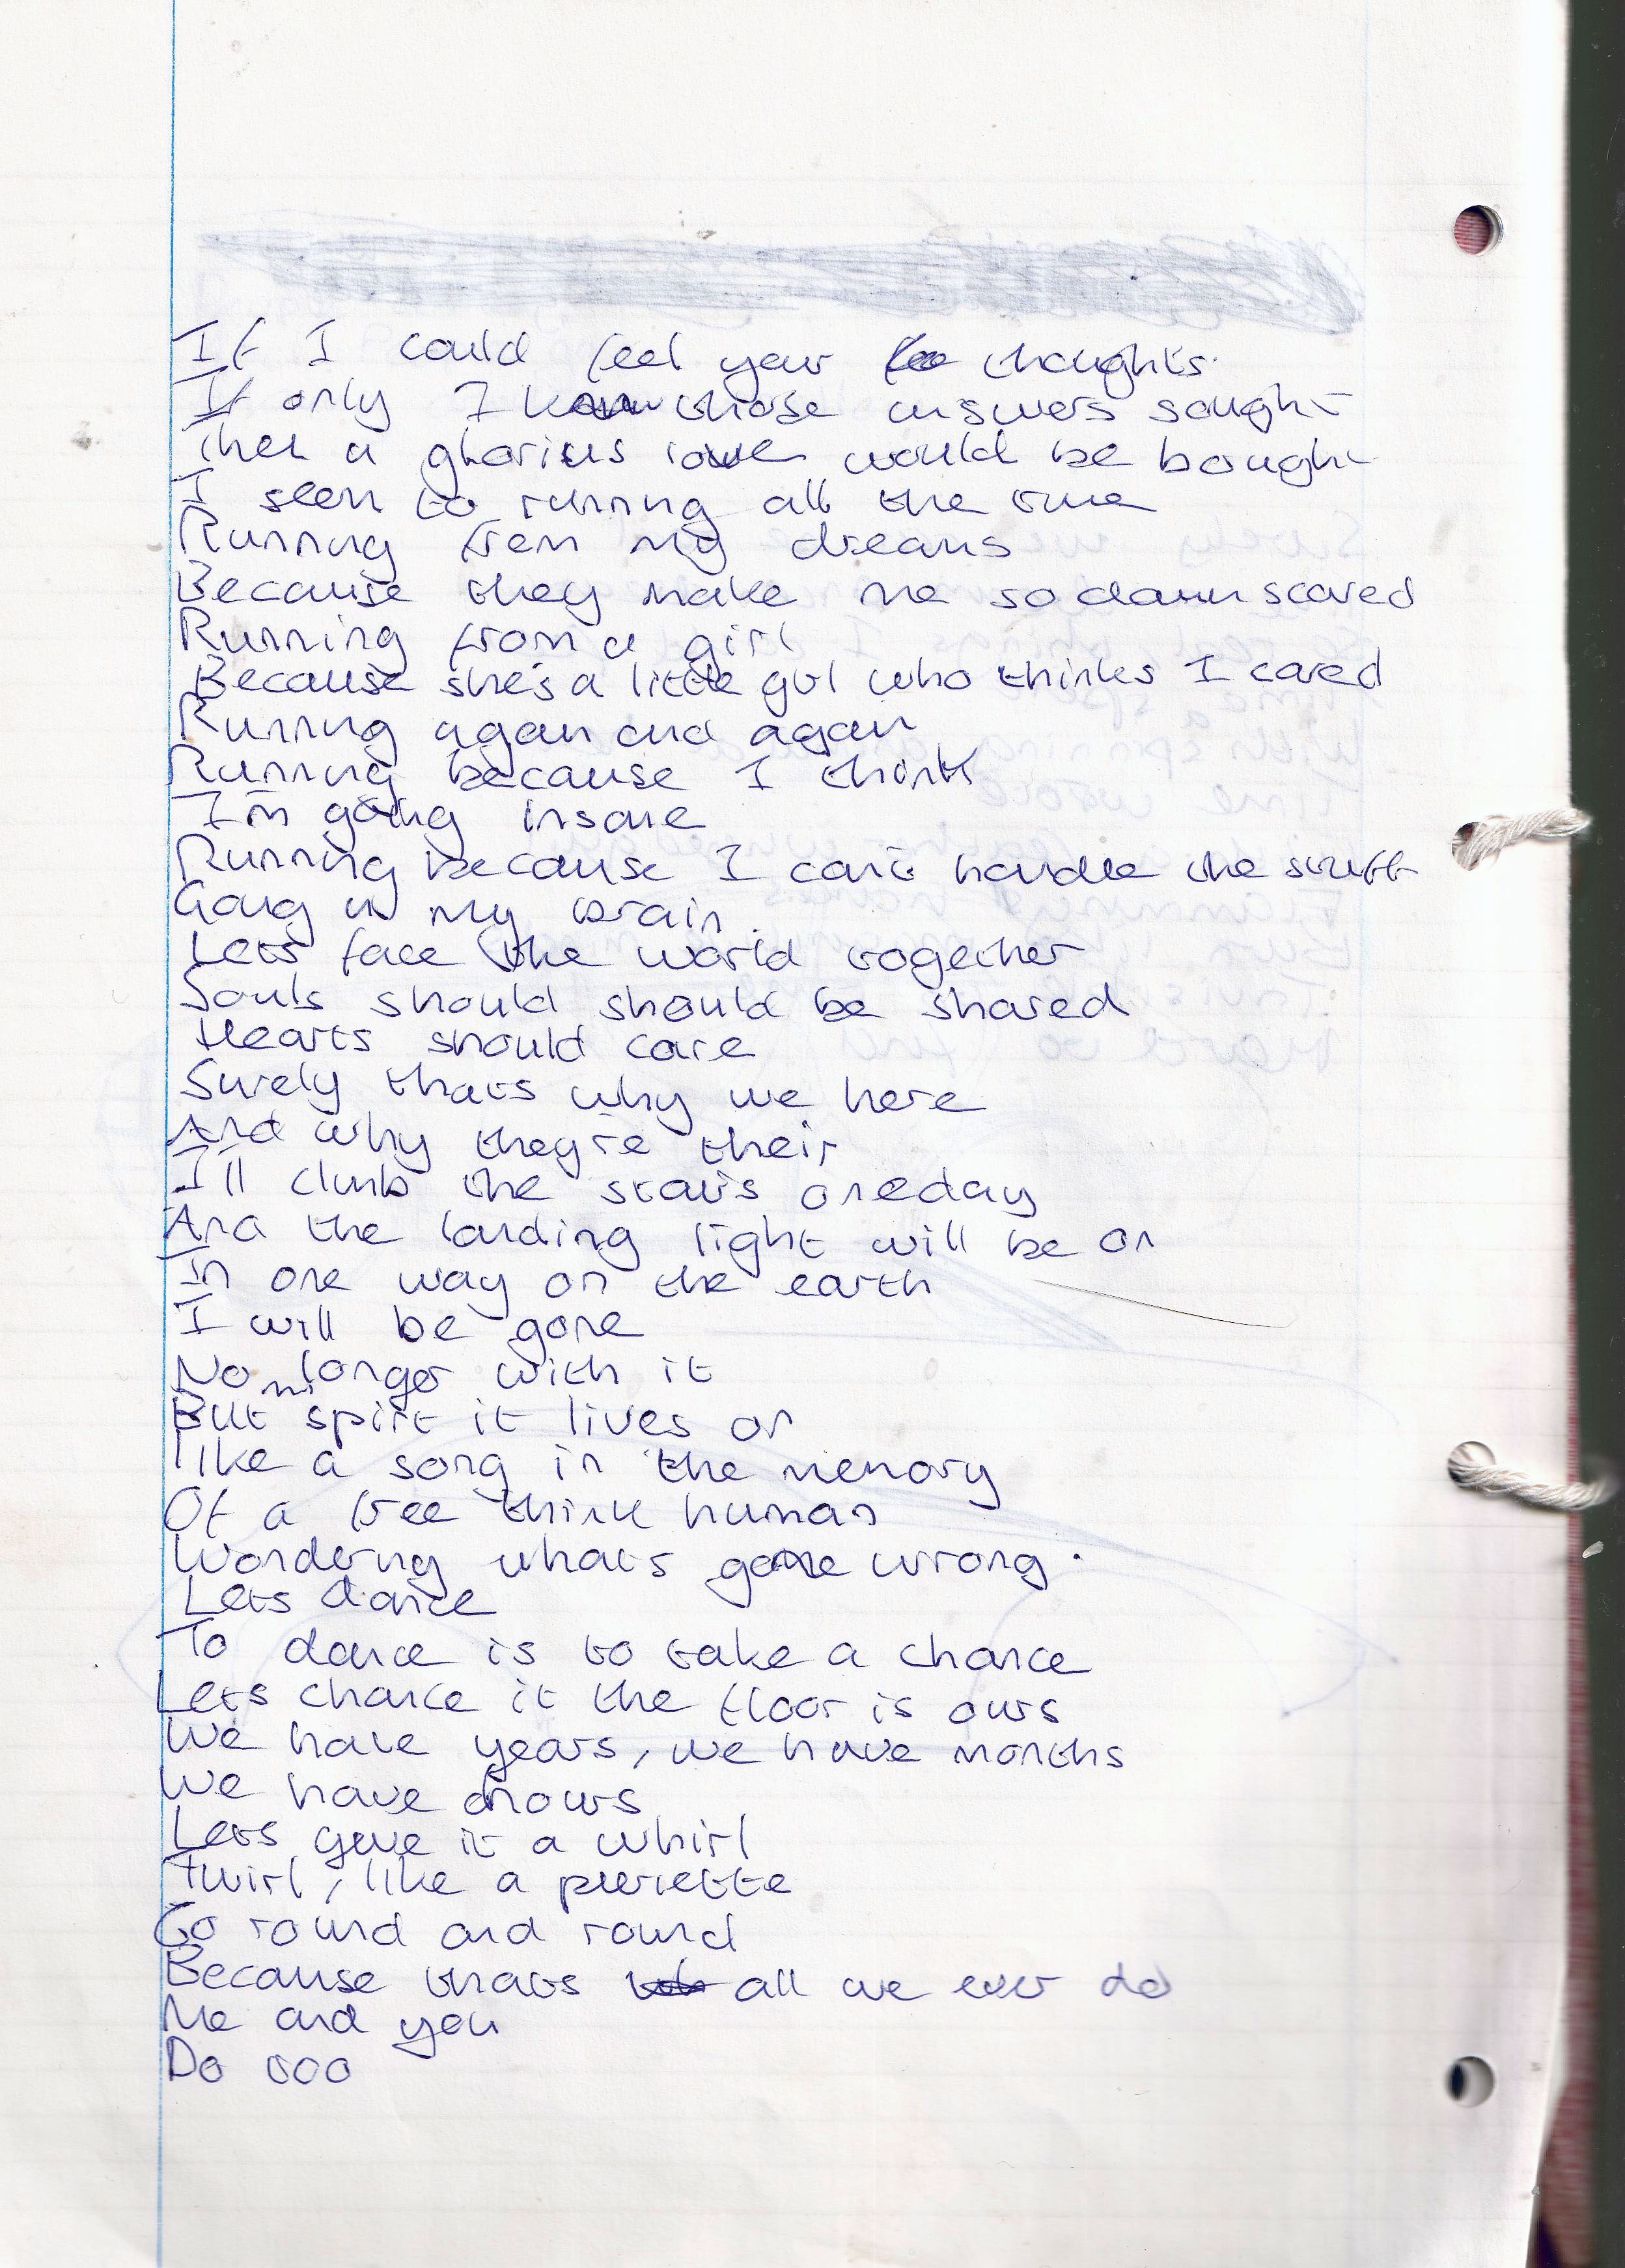 If I could feel your thoughts.
If only I knew those answers sought
Then a glorius love would be bought
I seem to running all the time
Running from my dreams
Because they make me so damn scared
Running from a girl
Because she's a little girl who thinks I cared
Running again and again
Running because I think
I'm going insane
Running because I can't handle the stuff
Going in my brain.
Lets face the world together
Souls should should be shared
Hearts should care
Surely thats why we here
And why they're their
I'll climb the stairs oneday
And the landing light will be on
In one way on the earth
I will be gone
No longer with it
But my spirt it lives on
like a song in the memory
Of a free think human
Wondering whats gone wrong.
Lets dance
To dance is to take a chance
Lets chance it the floor is ours
We have years, we have months
We have hours
Lets give it a whirl
Twirl, like a pieriette
Go round and round
Because thats all we ever do
Me and you
Do ooo